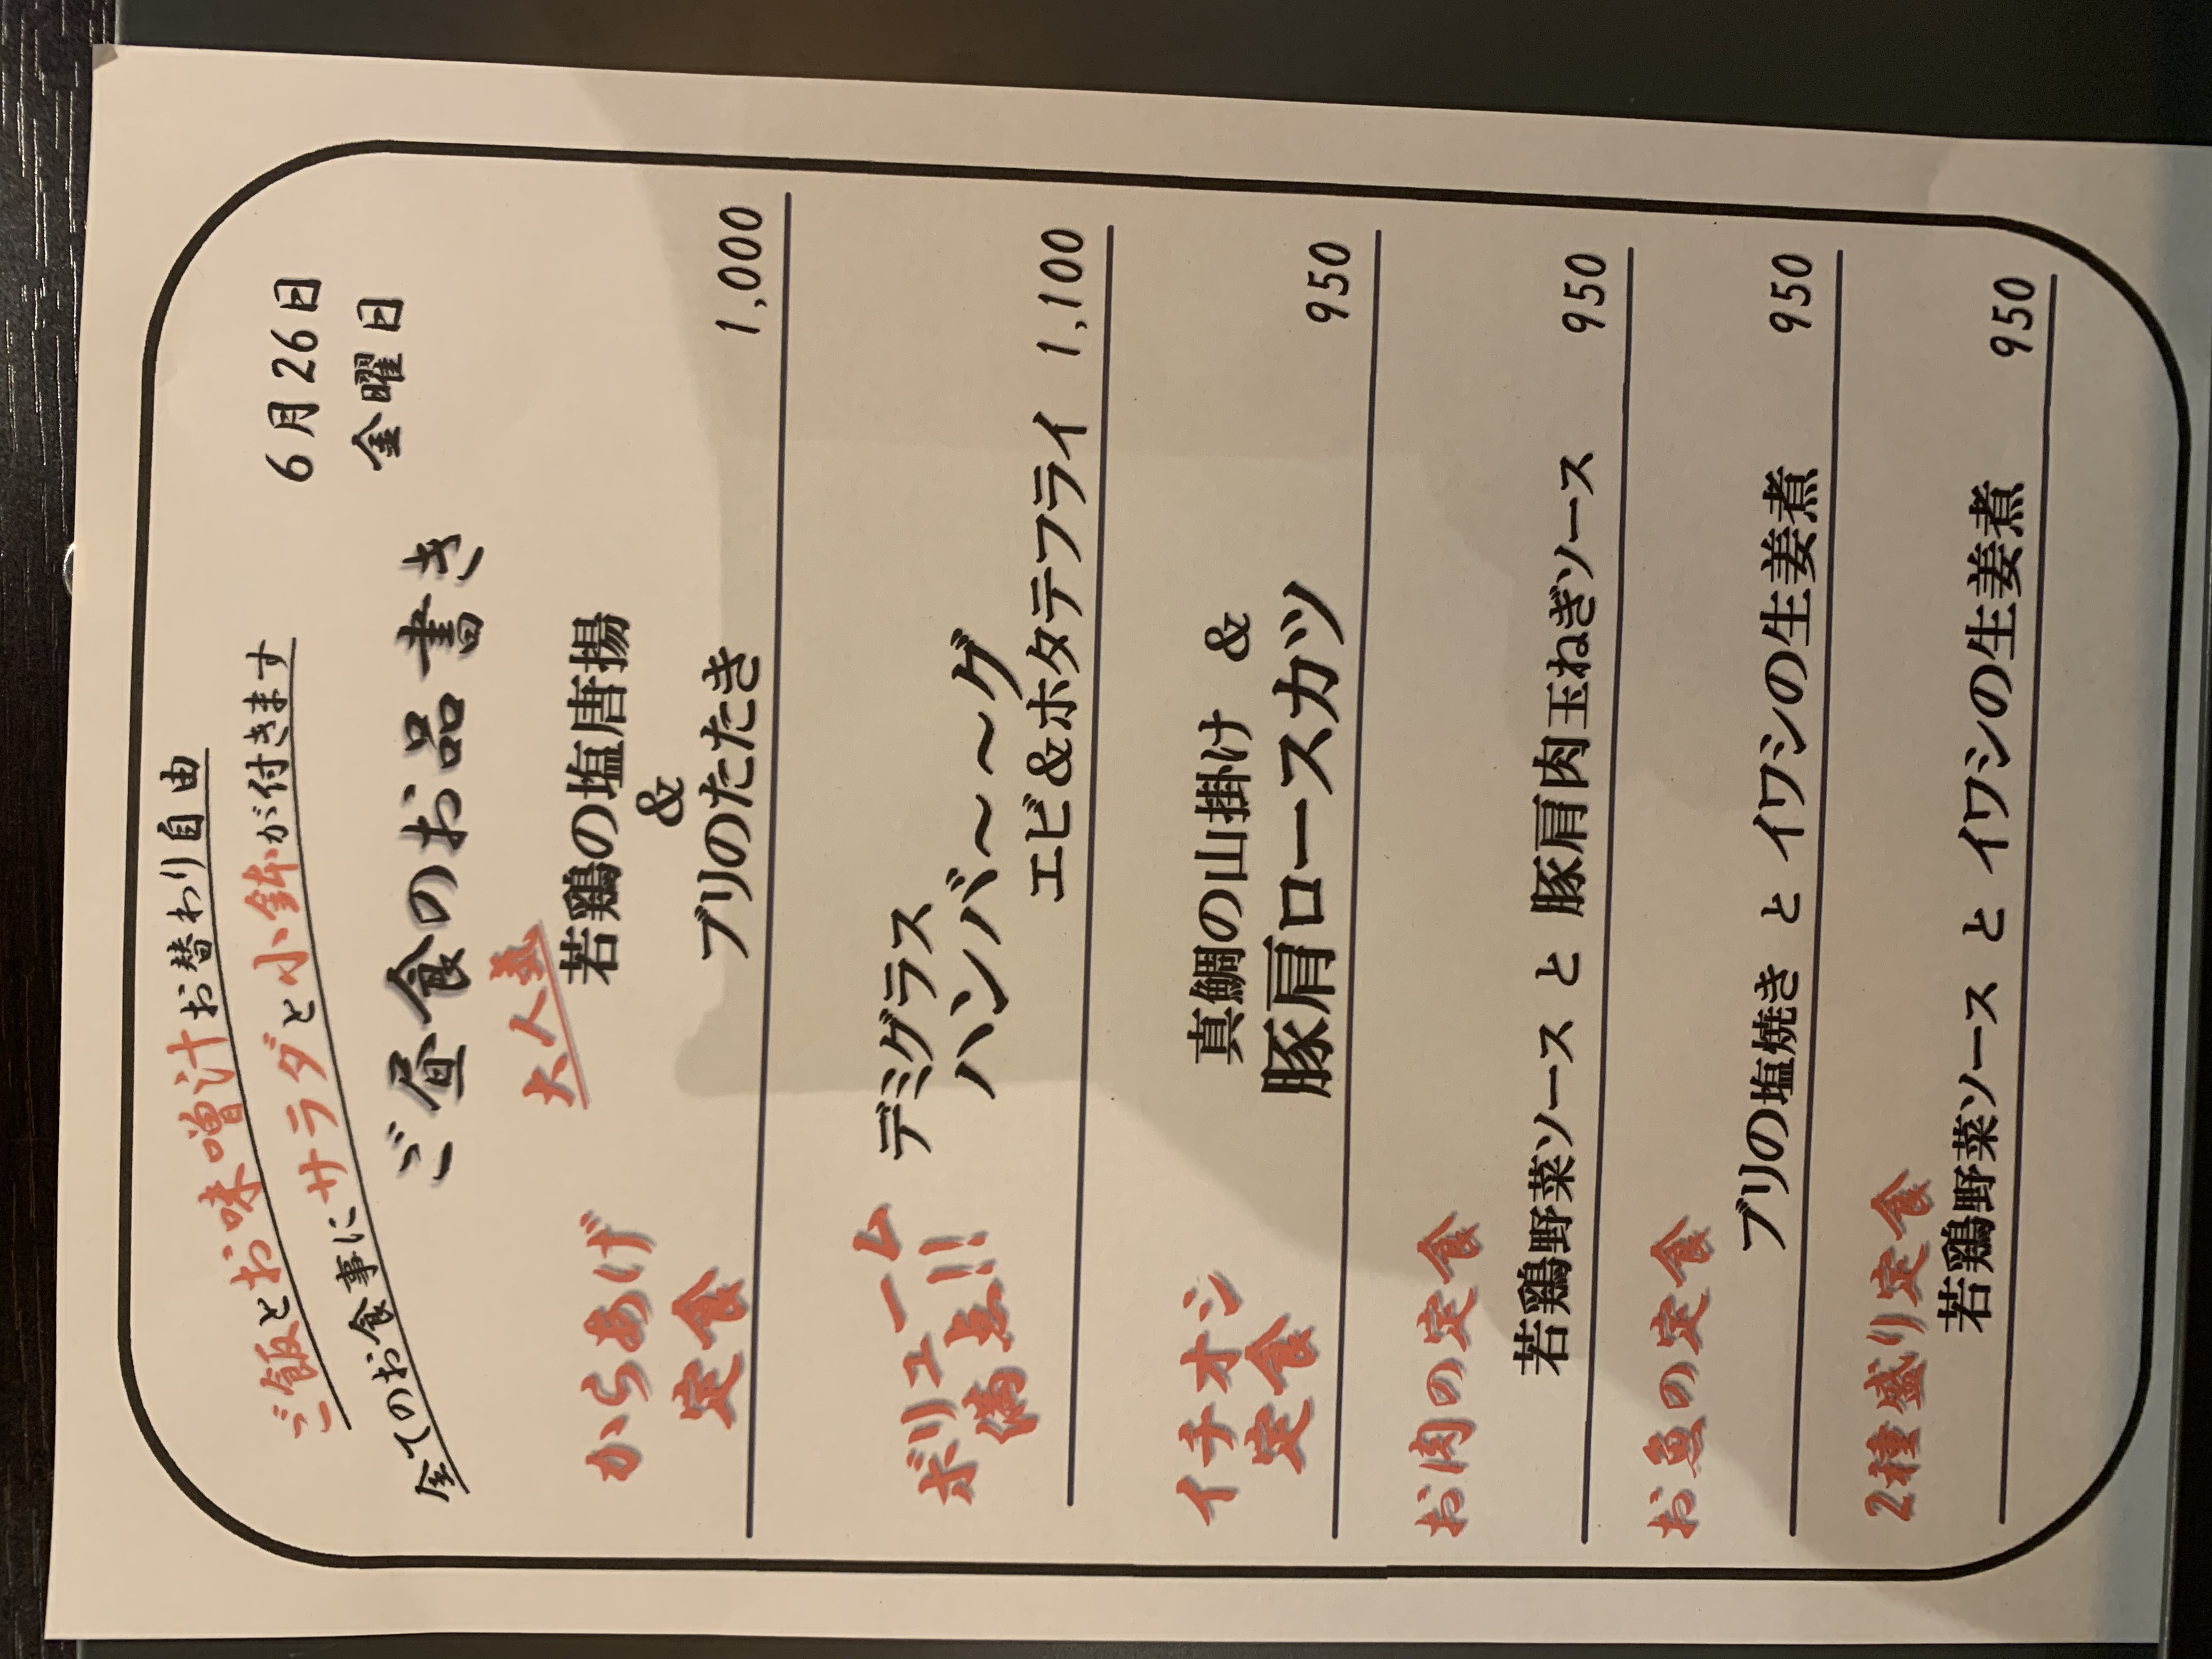 ご飯とお味噌汁お替わり自由
全てのお食事にサラダと小鉢が付きます
6月26日
金曜日
ご昼食のお品書き
大人気
からあげ
定食
若鶏の塩唐揚
&
ブリのたたき
1,000
ボリューム
満点!!
デミグラス
ハンバ～～グ
エビ&ホタテフライ 1,100
イチオシ
定食
真鯛の山掛け &
豚肩ロースカツ
950
お肉の定食
若鶏野菜ソース と 豚肩肉玉ねぎソース 950
お魚の定食
ブリの塩焼き と イワシの生姜煮 950
2種盛り定食
若鶏野菜ソース と イワシの生姜煮 950